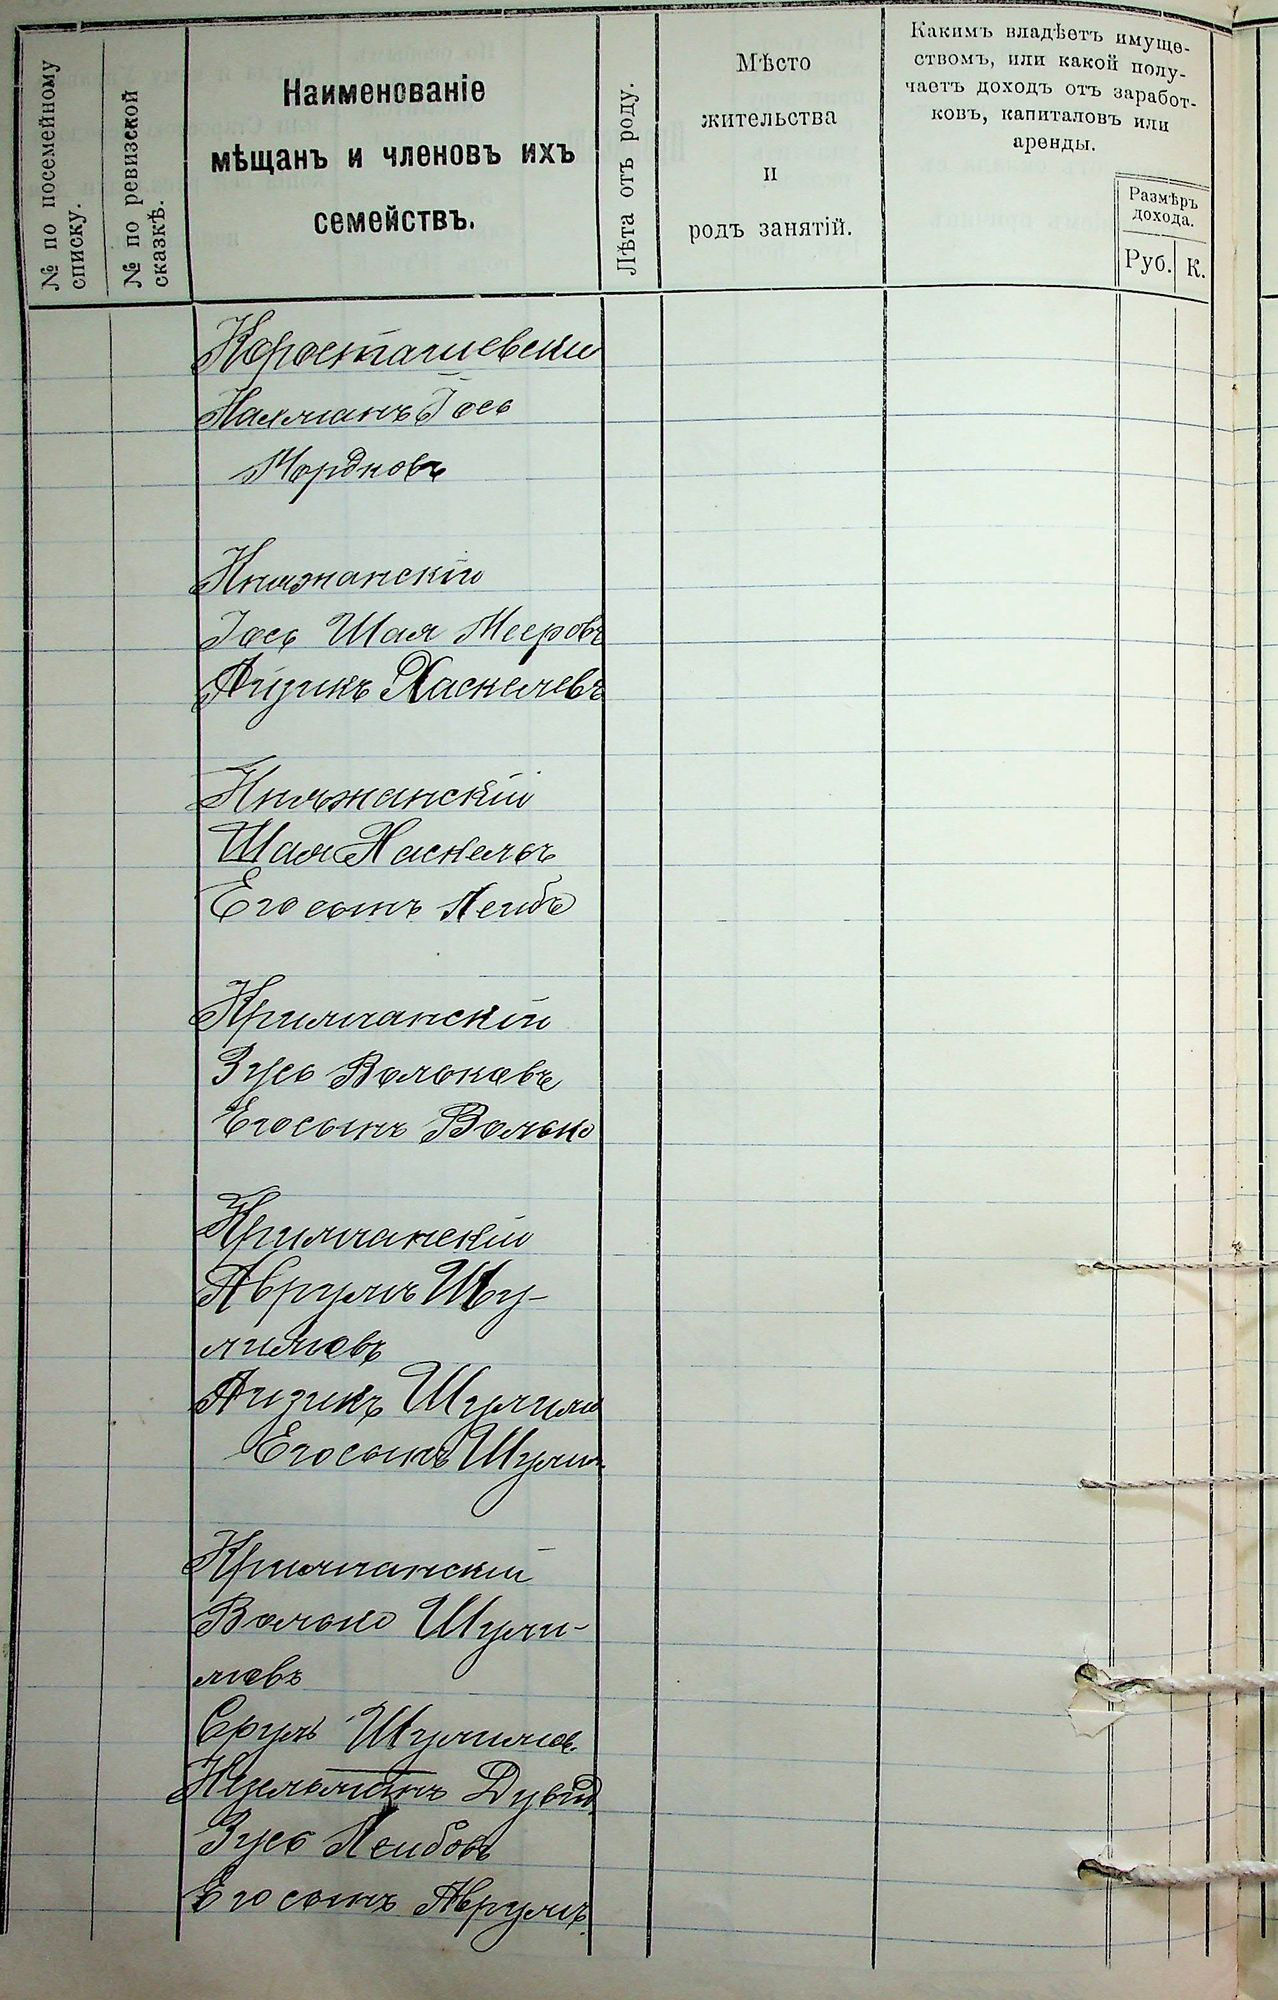 № по посемейному
списку.
№ по ревизской
сказкѣ.
Наименованіе
мѣщанъ и членовъ ихъ
семействъ.
Лѣта отъ роду.
Мѣсто
жительства
и
родъ занятій.
Какимъ владѣетъ имуще-
ствомъ, или какой полу-
чаетъ доходъ отъ заработ-
ковъ, капиталовъ или
аренды.
Размѣръ
дохода.
Руб.
К.
Коростишевски
Нахманъ Іось
Мордковъ
Княжанскій
Іось Шая Мееровъ
Айзикъ Хаскелевъ
Княжанскій
Шая Хаскелъ
Его сынъ Лейбъ
Кримчанскій
Зусь Вольковъ
Его сынъ Волько
Кримчанскій
Аврумъ Шу-
лимовъ
Айзикъ Шулимо
Его сынъ Шулим
Кримчанскій
Волько Шули-
мовъ
Сруль Шулимов.
Кельманъ Дувид.
Зусь Лейбовъ
Его сынъ Аврумъ.